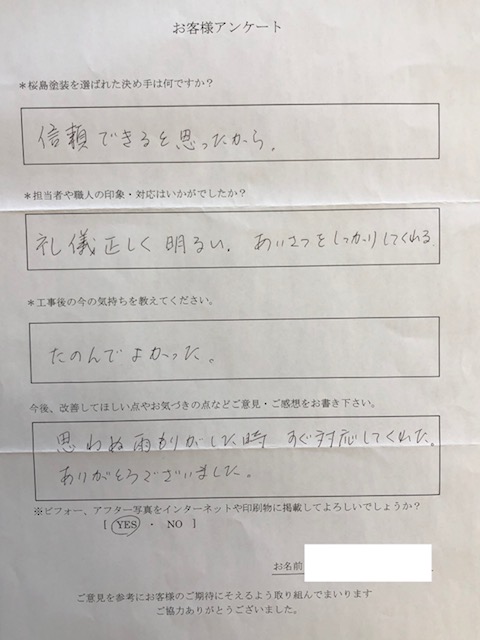 お客様アンケート
＊桜島塗装を選ばれた決め手は何ですか？
信頼できると思ったから。
＊担当者や職人の印象・対応はいかがでしたか？
礼儀正しく明るい。あいさつをしっかりしてくれる
＊工事後の今の気持ちを教えてください。
たのんでよかった。
今後、改善してほしい点やお気づきの点などご意見・ご感想をお書き下さい。
思わぬ雨もりがした時 すぐ対応してくれた。
ありがとうございました。
※ビフォー、アフター写真をインターネットや印刷物に掲載してよろしいでしょうか？
[ YES ・ NO ]
お名前
ご意見を参考にお客様のご期待にそえるよう取り組んでまいります
ご協力ありがとうございました。